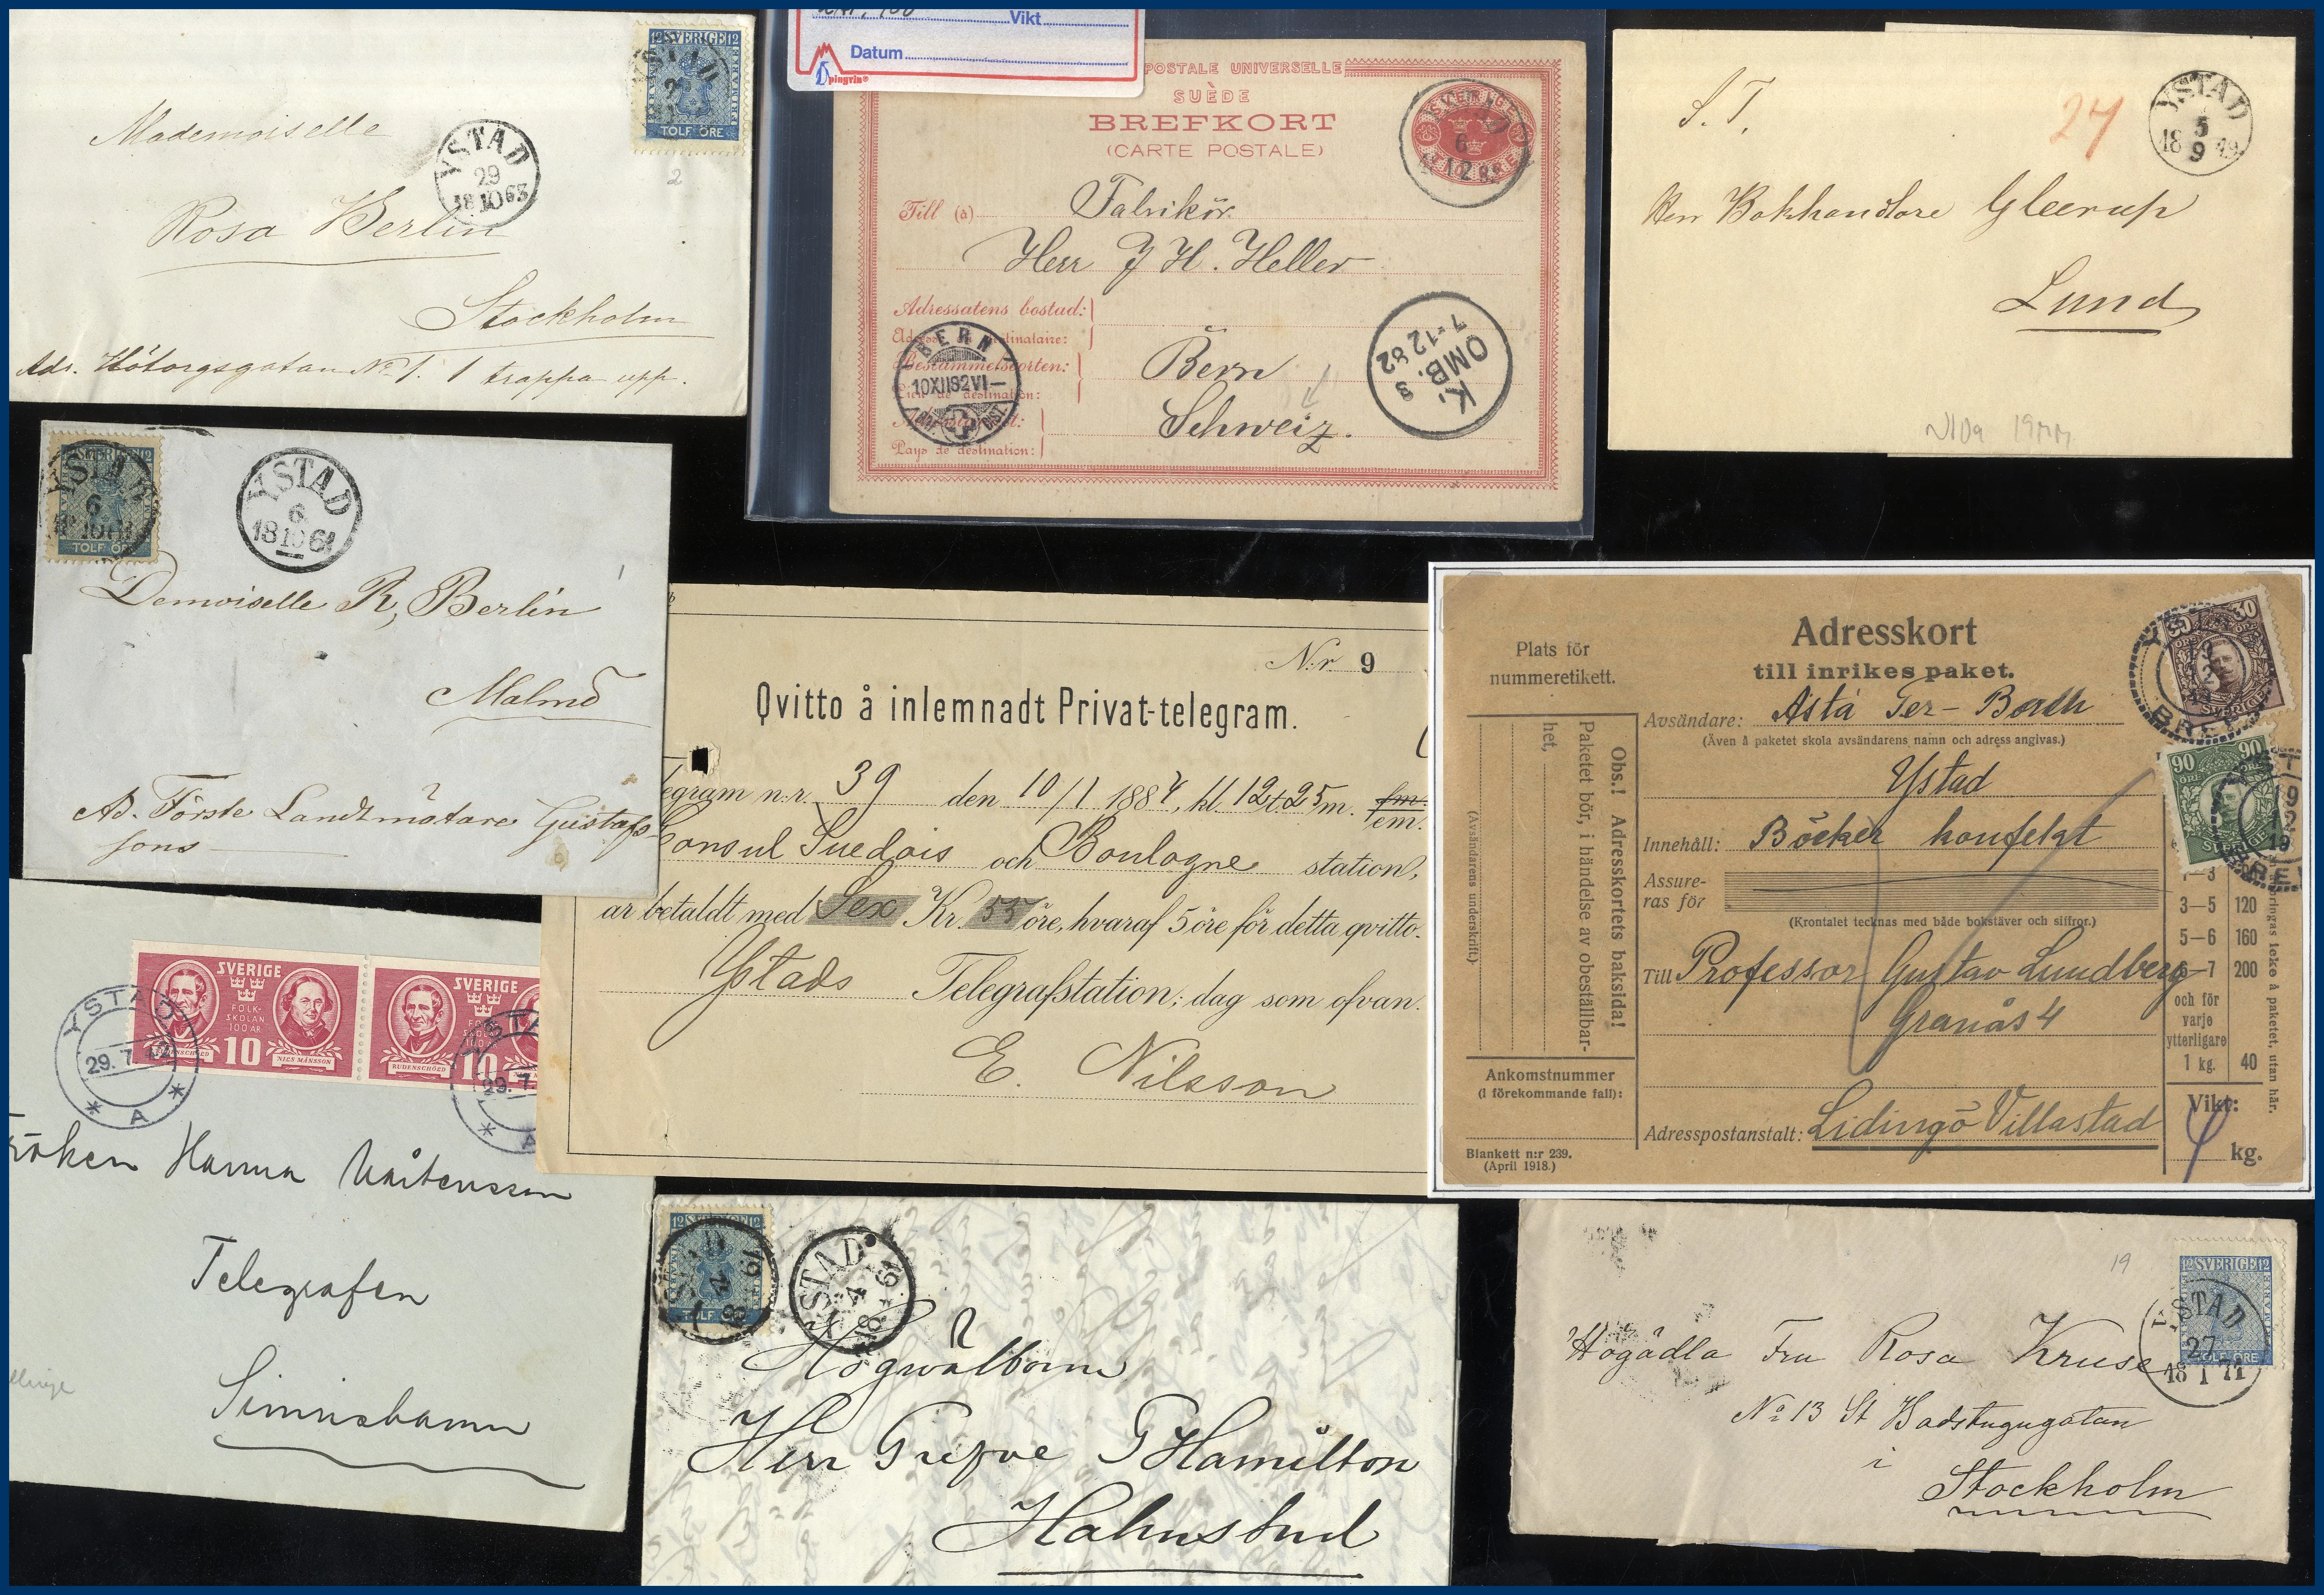 12 SVERIGE 12
YSTAD
TOLF ÖRE
YSTAD
29
18 10 63
2
Mademoiselle
Rosa Berlin
Stockholm
Adr. Hötorgsgatan No 1. 1 trappa upp.
Vikt
Datum
pingvin®
POSTALE UNIVERSELLE
SUÈDE
BREFKORT
(CARTE POSTALE)
Till (à)
Fabrikör
Herr J H. Heller
Adressatens bostad:
Bestämmelseorten:
Lieu de destination:
Pays de destination:
Bern
Schweiz.
BERN
10 XII 82 VI—
K.
OMB. 3
7 12 82
S. T.
24
YSTAD
5
18 49
9
Herr Bokhandlare Gleerup
Lund
N10a 19mm
SVERIGE 12
YSTAD
6
TOLF ÖRE
YSTAD
6
18 10 61
Demoiselle R, Berlin
Malmö
Ad. Förste Landtmätare Gustafs-
sons
N:r 9
Qvitto å inlemnadt Privat-telegram.
egram n:r 39 den 10/1 1884, kl. 12 t. 25 m. fm. em.
Consul Suedois och Boulogne station,
är betaldt med Sex Kr. 55 öre, hvaraf 5 öre för detta qvitto.
Ystads Telegrafstation; dag som ofvan.
E. Nilsson
Plats för
nummeretikett.
Adresskort
till inrikes paket.
Avsändare: Asta Ter-Borch
(Även å paketet skola avsändarens namn och adress angivas.)
Ystad
Innehåll: Böcker konfekt
Assure-
ras för
(Krontalet tecknas med både bokstäver och siffror.)
Till Professor Gustav Lundberg
Granås 4
Adresspostanstalt: Lidingö Villastad
Obs.! Adresskortets baksida!
Paketet bör, i händelse av obeställbar-
het,
(Avsändarens underskrift.)
Ankomstnummer
(i förekommande fall):
Blankett n:r 239.
(April 1918.)
30
SVERIGE
90 90
ÖRE
SVERIGE
3—5 120
5—6 160
—7 200
och för
varje
ytterligare
1 kg. 40
Vikt:
4 kg.
SVERIGE
FOLK-
SKOLAN
100 ÅR
10
NILS MÅNSSON
SVERIGE
RUDENSCHÖLD
10
YSTAD
29. 7. 42
* A *
29. 7
Hanna Mårtensson
Telegrafen
Simrishamn
12 SVERIGE 12
TOLF
YSTAD
4
Högwälborne
Herr Grefve G Hamilton
Halmstad
19
12 SVERIGE 12
TOLF ÖRE
YSTAD
27
18 1 71
Högädla Fru Rosa Kruse
No 13 St Badstugugatan
i
Stockholm